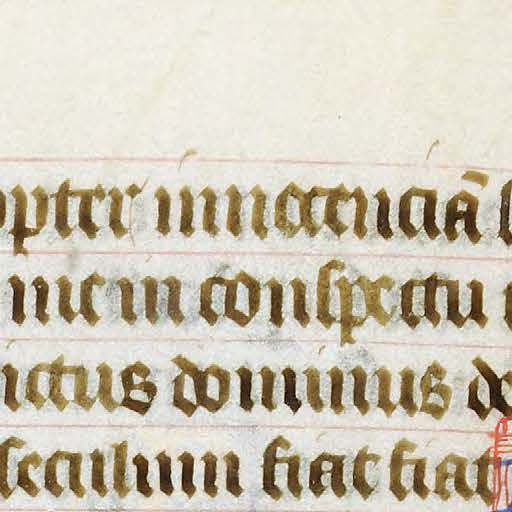 opter innocenciā
me in conspectu
nctus dominus de
seculum fiat fiat